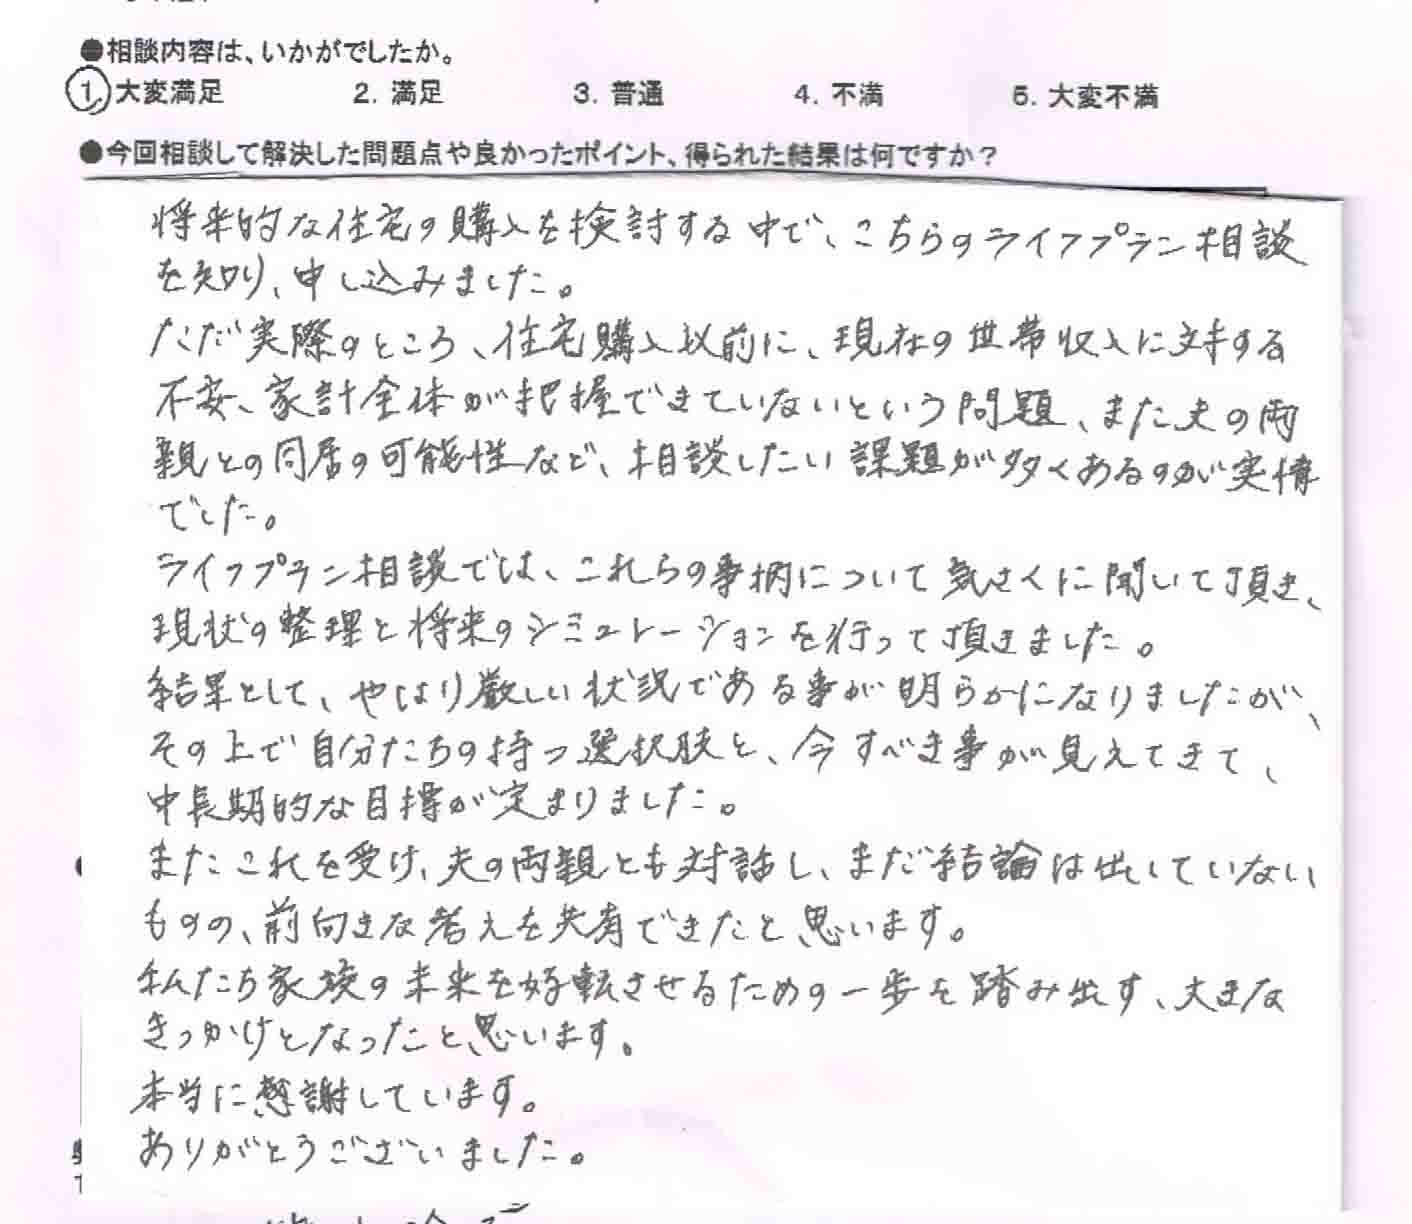 ●相談内容は、いかがでしたか。
1. 大変満足 2. 満足 3. 普通 4. 不満 5. 大変不満
●今回相談して解決した問題点や良かったポイント、得られた結果は何ですか？
将来的な住宅の購入を検討する中で、こちらのライフプラン相談
を知り、申し込みました。
ただ実際のところ、住宅購入以前に、現在の世帯収入に対する
不安、家計全体が把握できていないという問題、また夫の両
親との同居の可能性など、相談したい課題が多くあるのが実情
でした。
ライフプラン相談では、これらの事柄について気さくに聞いて頂き、
現状の整理と将来のシミュレーションを行って頂きました。
結果として、やはり厳しい状況である事が明らかになりましたが、
その上で自分たちの持つ選択肢と、今すべき事が見えてきて、
中長期的な目標が定まりました。
またこれを受け、夫の両親とも対話し、まだ結論は出していない
ものの、前向きな考えを共有できたと思います。
私たち家族の未来を好転させるための一歩を踏み出す、大きな
きっかけとなったと思います。
本当に感謝しています。
ありがとうございました。